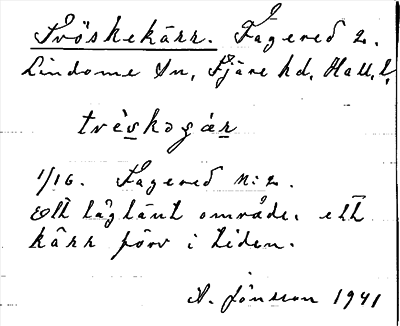 Tröskekärr. Fagered 2.
Lindome Sn, Fjäre hd, Hall. l.
trèskɔgær
1/16. Fagered N:2.
Ett låglänt område. ett
kärr förr i tiden.
A. Jönsson 1941